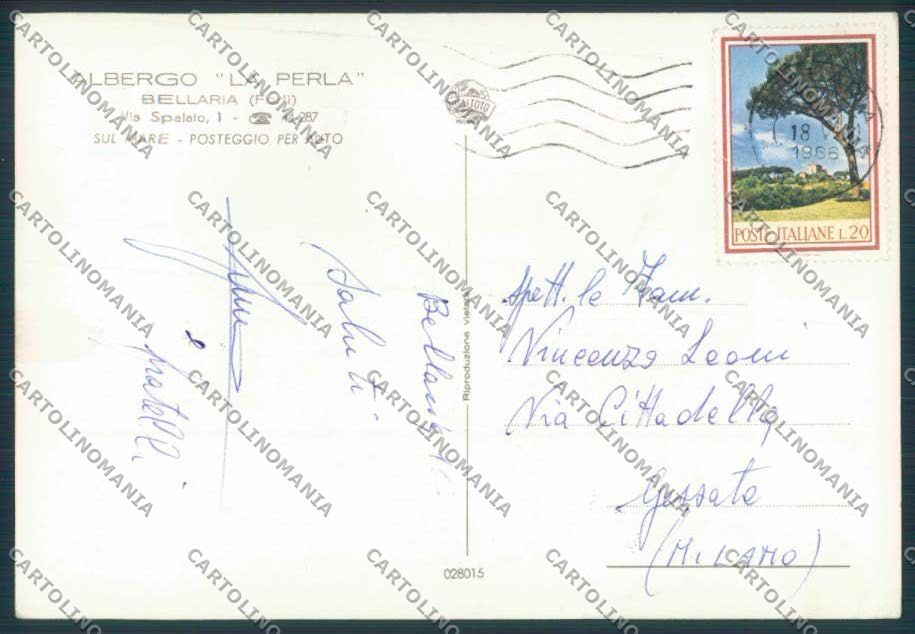 ALBERGO "LA PERLA"
BELLARIA (Forlì)
Via Spalato, 1 - ☎ 287
SUL MARE - POSTEGGIO PER AUTO
18
1966
POSTE ITALIANE L. 20
Bellaria
Saluti
e fratelli
Spett. le Fam.
Vincenzo Leoni
Via Cittadella
Gessate
(MILANO)
Riproduzione vietata
028015
CARTOLINOMANIA